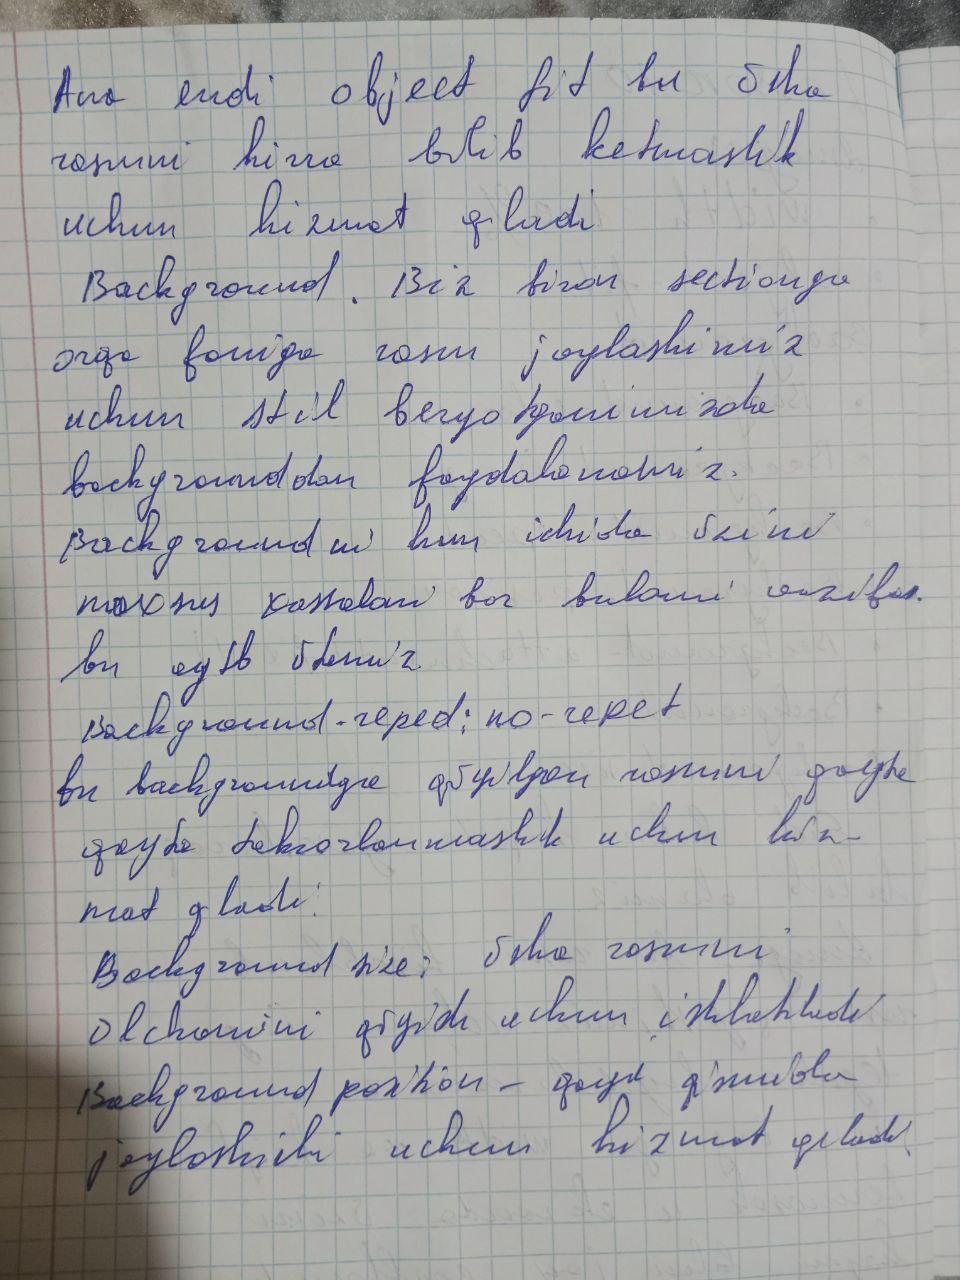 Ana endi object fit bu õsha
rasmni hira bõlib ketmaslik
uchun hizmat qiladi
Background. Biz biron sectionga
orqa foniga rasm joylashimiz
uchun stil beryotganimizda
backgrounddan foydalanamiz.
Backgroundni hum ichida õzini
maxsus xossalari bor bularni vazifas.
bn aytb õtamiz
Background-reped: no-repet
bu backgroundga qõyilgan rasmni qayta
qayta takrorlanmaslik uchun hiz-
mat qiladi.
Background size: õsha rasmni
olchamini qõyish uchun ishlatiladi
Background position - qaysi qismida
joylashishi uchun hizmat qiladi.